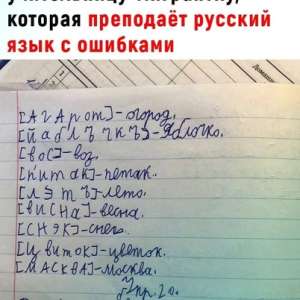 которая преподаёт русский
язык с ошибками
[АгАрот]-огород.
[йаблъчкъ]-яблочко.
[вос]-воз.
[питак]-петак.
[лэтъ]-лето.
[висна]-весна.
[снэк]-снег.
[цвиток]-цветок.
[МАСКВА]-Москва.